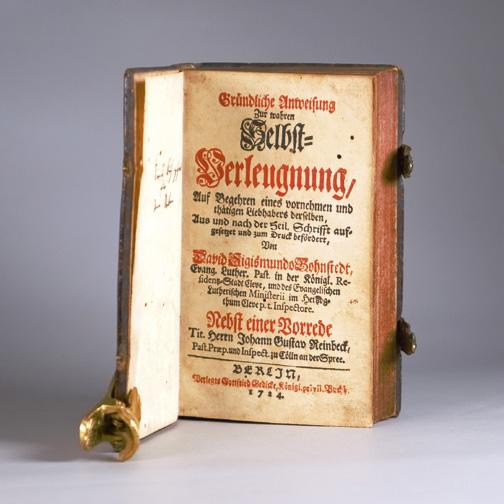 Gründliche Anweisung
Zur wahren
Selbst-
Verleugnung,
Auf Begehren eines vornehmen und
thätigen Liebhabers derselben,
Aus und nach der Heil. Schrifft auf-
gesetzet und zum Druck befördert,
Von
David Sigismundo Bohnstedt,
Evang. Luther. Past. in der Königl. Re-
sidentz-Stadt Cleve, und des Evangelischen
Lutherischen Ministerii im Hertzog-
thum Cleve p. t. Inspectore.
Nebst einer Vorrede
Tit. Herrn Johann Gustav Reinbeck,
Past. Præp. und Inspect. zu Cölln an der Spree.
BERLIN,
Verlegts Gottfried Gedicke, Königl. privil. Buchh.
1724.